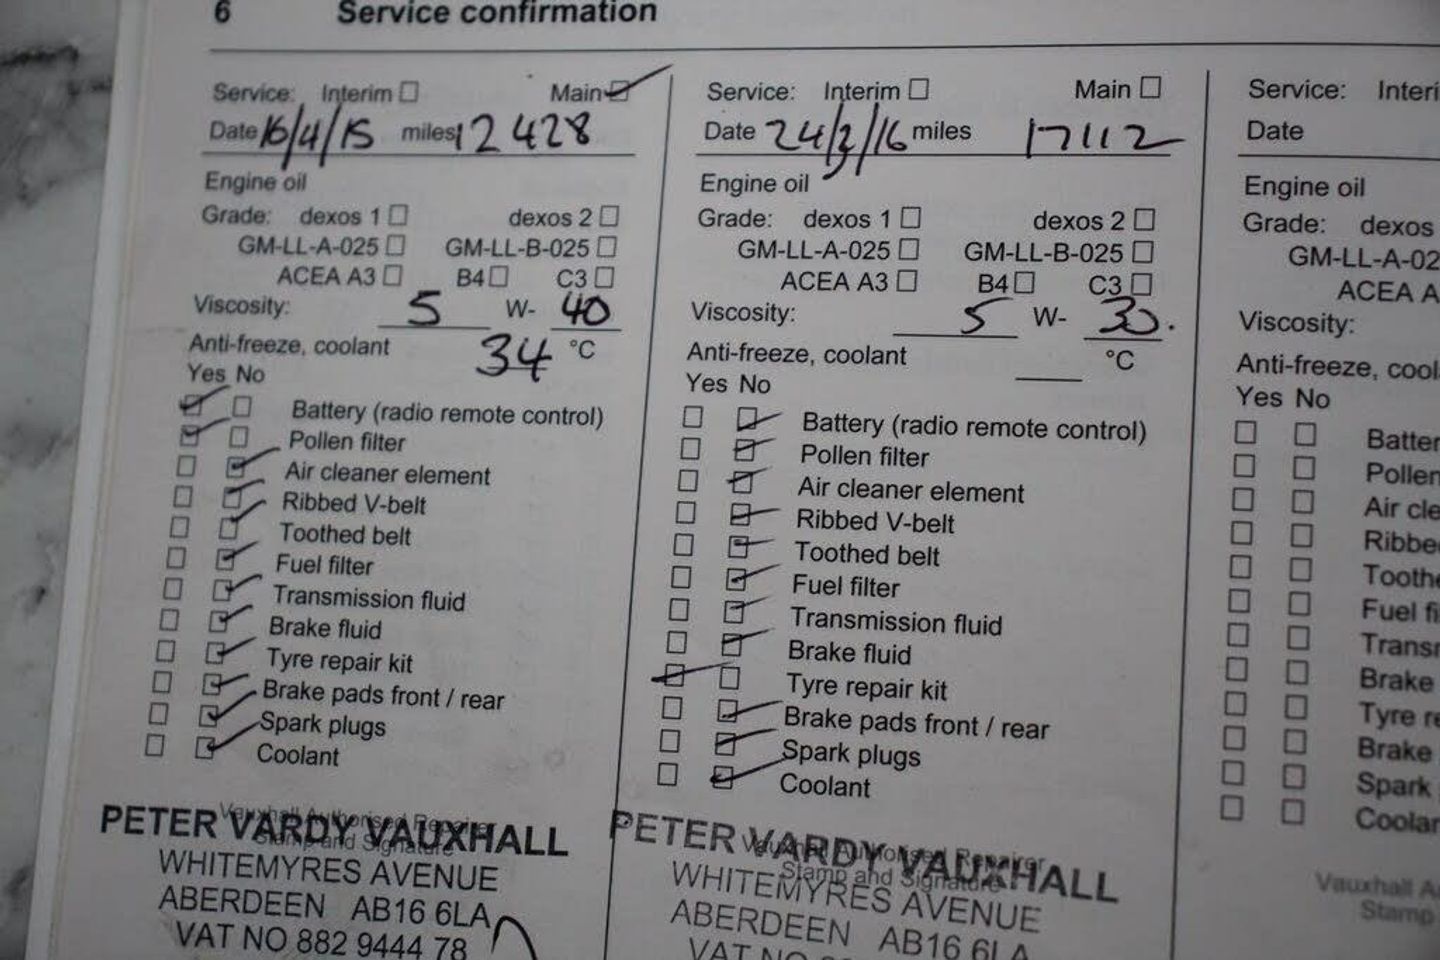 6 Service confirmation
Service: Interim Main
Date 16/4/15 miles 12428
Engine oil
Grade: dexos 1 dexos 2
GM-LL-A-025 GM-LL-B-025
ACEA A3 B4 C3
Viscosity: 5 W- 40
Anti-freeze, coolant 34 °C
Yes No
Battery (radio remote control)
Pollen filter
Air cleaner element
Ribbed V-belt
Toothed belt
Fuel filter
Transmission fluid
Brake fluid
Tyre repair kit
Brake pads front / rear
Spark plugs
Coolant
Vauxhall Authorised Repairer
Stamp and Signature
PETER VARDY VAUXHALL
WHITEMYRES AVENUE
ABERDEEN AB16 6LA
VAT NO 882 9444 78
Service: Interim Main
Date 24/2/16 miles 17112
Engine oil
Grade: dexos 1 dexos 2
GM-LL-A-025 GM-LL-B-025
ACEA A3 B4 C3
Viscosity: 5 W- 30.
Anti-freeze, coolant °C
Yes No
Battery (radio remote control)
Pollen filter
Air cleaner element
Ribbed V-belt
Toothed belt
Fuel filter
Transmission fluid
Brake fluid
Tyre repair kit
Brake pads front / rear
Spark plugs
Coolant
Vauxhall Authorised Repairer
Stamp and Signature
PETER VARDY VAUXHALL
WHITEMYRES AVENUE
ABERDEEN AB16 6LA
VAT NO
Service: Interi
Date
Engine oil
Grade: dexos
GM-LL-A-02
ACEA A
Viscosity:
Anti-freeze, cool
Yes No
Batter
Pollen
Air cle
Ribbe
Toothe
Fuel fi
Transm
Brake
Tyre re
Brake
Spark
Coolan
Vauxhall Au
Stamp